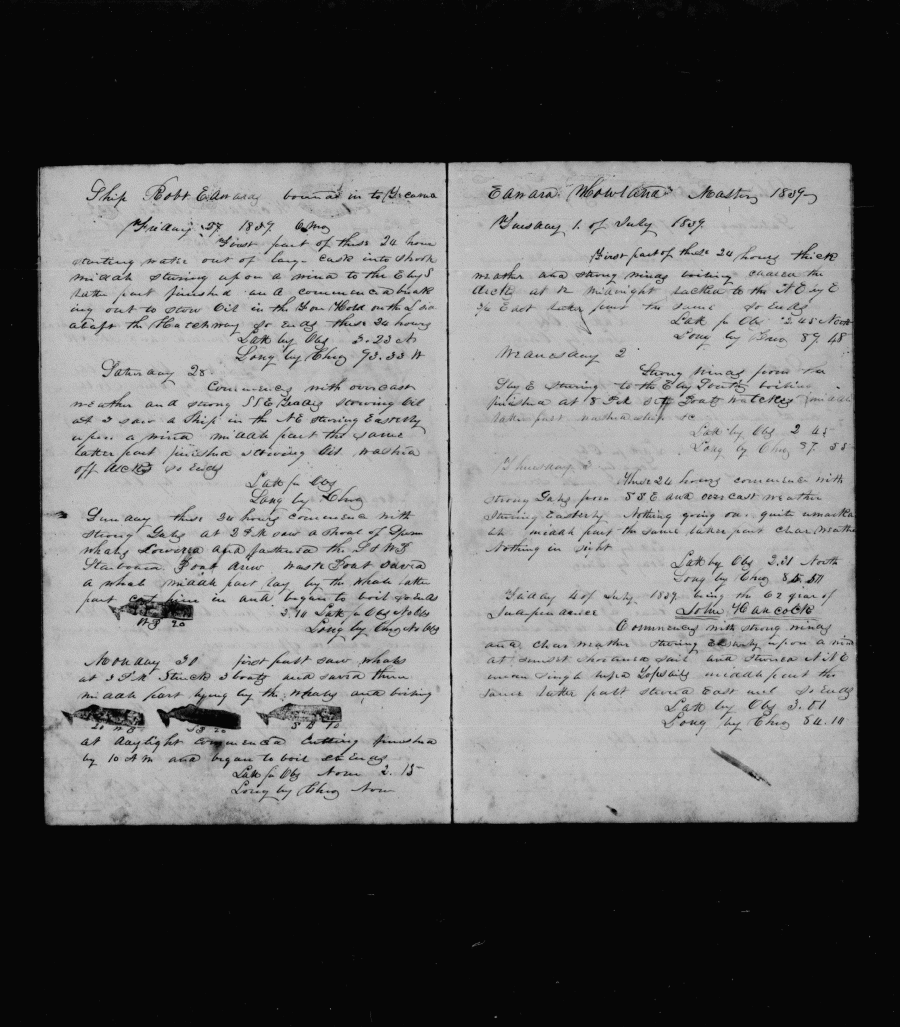 Ship Robt Edward bound in to
Friday 1839
First part of these 24 hours
starting water out of large cask into
middle stearing upon a wind to the E by S
latter part finished and commenced break
ing out to stow Oil in the Fore Hold on the
abaft the Hatchway So Ends these 24 hours
Lat by Obs 3.23
Long by Chro 93.33 W
Saturday 28
Commences with overcast
weather and strong SSE stowing Oil
at 3 saw a Ship in the NE stearing Easterly
upon a wind middle part the same
latter part finished stowing Oil washed
off decks So Ends
Lat by Obs
Long by Chro
Sunday these 24 hours commence with
strong Gales at 2 P.M. saw a shoal of Sperm
whales Lowered and fastened the
Starboard Boat drew waist Boat saved
a whale middle part lay by the whale latter
part cut him in and began to boil So Ends
Lat by Obs No Obs
WB 20
Long by Chro No Obs
Monday 30 first part saw whales
at 2 P.M. Struck 3 boats and saved three
middle part lying by the whales and boiling
20
at daylight commenced Cutting finished
by 10 A.M. and began to boil So Ends
Lat by Obs None 2.15
Long by Chro None
Edward Howland Master 1839
Tuesday 1 of July 1839
First part of these 24 hours thick
weather and strong winds boiling
decks at 12 midnight tacked to the N E by E
3/4 East latter part the same So Ends
Lat by Obs 2.45 North
Long by Chro 89 48
Wednesday 2
Strong winds from the
S by E stearing to the E by South boiling
finished at 8 P.M. set Boat watches middle
latter part washed ship &c
Lat by Obs 2 45
Long by Chro
Thursday 3
These 24 hours commence with
strong Gales from SSE and overcast weather
Stearing Easterly Nothing going on quite
middle part the same latter part clear weather
Nothing in sight
Lat by Obs 2.31 North
Long by Chro
Friday 4 of July 1839 being the 62 year of
Independence John Hancock
Commences with strong winds
and clear weather stearing Easterly upon a wind
at sunset shortened sail and steered N N E
under single topsails middle part the
same latter part steered East So Ends
Lat by Obs 3.01
Long by Chro 84.10